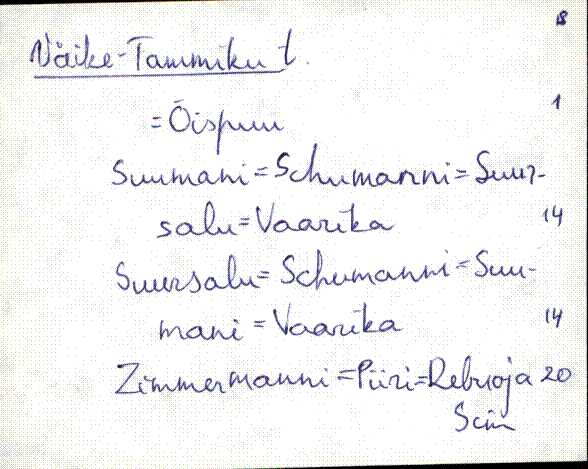 8
Väike-Tammiku t.
= Õispuu 1
Suumani = Schumanni = Suur-
salu = Vaarika 14
Suursalu = Schumanni = Suu-
mani = Vaarika 14
Zimmermanni = Piiri = Rebuoja 20